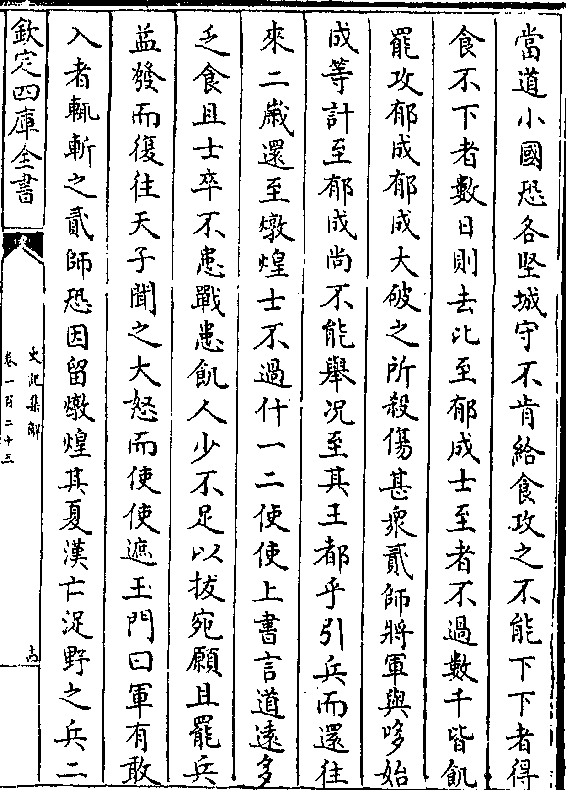 當道小國恐各堅城守不肯給食攻之不能下下者得
食不下者數日則去比至郁成士至者不過數千皆飢
罷攻郁成郁成大破之所殺傷甚衆貳師將軍與哆始
成等計至郁成尚不能舉况至其王都乎引兵而還往
來二歲還至燉煌士不過什一二使使上書言道逺多
乏食且士卒不患戰患飢人少不足以拔宛願且罷兵
益發而復往天子聞之大怒而使使遮玉門曰軍有敢
入者輒斬之貳師恐因留燉煌其夏漢亡浞野之兵二
欽定四庫全書
史記集解
卷一百二十三
十四